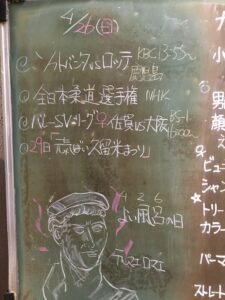 4/26(日)
◎ソフトバンクvsロッテ KBC 13:55〜
鹿児島
◎全日本柔道選手権 NHK
◎バレーSVリーグ♀佐賀vs大阪
◎29日「素ばい久留米まつり」
4 2 6
よい風呂の日
テルマエ ロマエ
小
男
顔
♀
ビュー
シャン
トリー
カラー
パーマ
ストレート